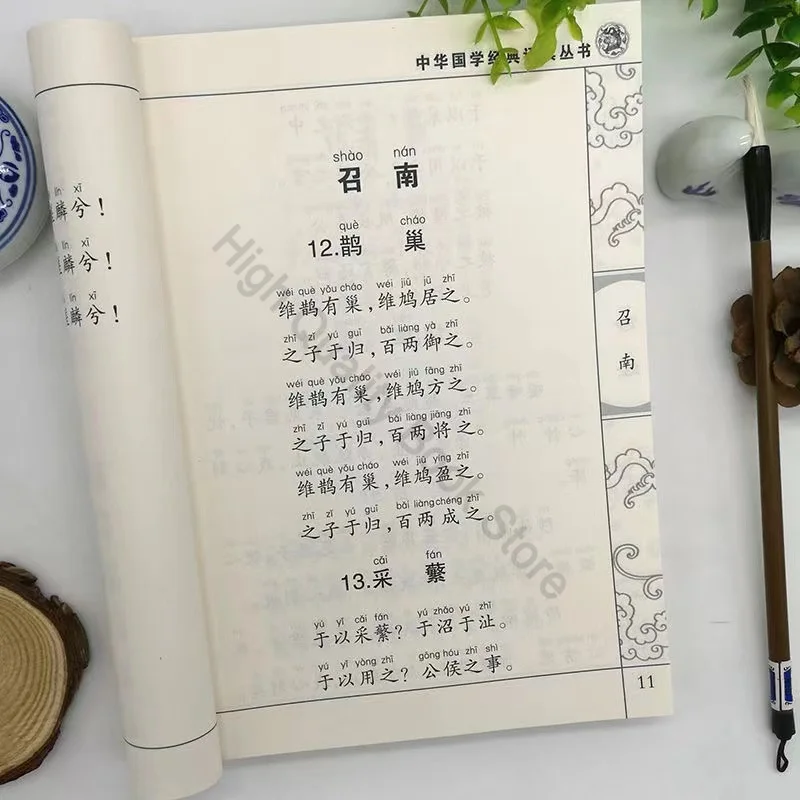 lín xī
麟兮！
lín xī
麟兮！
lín xī
麟兮！
中华国学经典 丛书
shào nán
召 南
què cháo
12.鹊 巢
wéi què yǒu cháo wéi jiū jū zhī
维鹊有巢，维鸠居之。
zhī zǐ yú guī bǎi liàng yà zhī
之子于归，百两御之。
wéi què yǒu cháo wéi jiū fāng zhī
维鹊有巢，维鸠方之。
zhī zǐ yú guī bǎi liàng jiāng zhī
之子于归，百两将之。
wéi què yǒu cháo wéi jiū yíng zhī
维鹊有巢，维鸠盈之。
zhī zǐ yú guī bǎi liàng chéng zhī
之子于归，百两成之。
cǎi fán
13.采 蘩
yú yǐ cǎi fán yú zhǎo yú zhǐ
于以采蘩？于沼于沚。
yú yǐ yòng zhī gōng hóu zhī shì
于以用之？公侯之事。
召南
11
High Quality Book Store